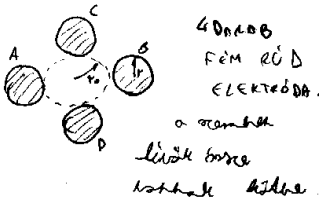 C
A
B
r
r₀
D
4 DARAB
FÉM RÚD
ELEKTRÓDA.
a szemben
lévők össze
vannak kötve.